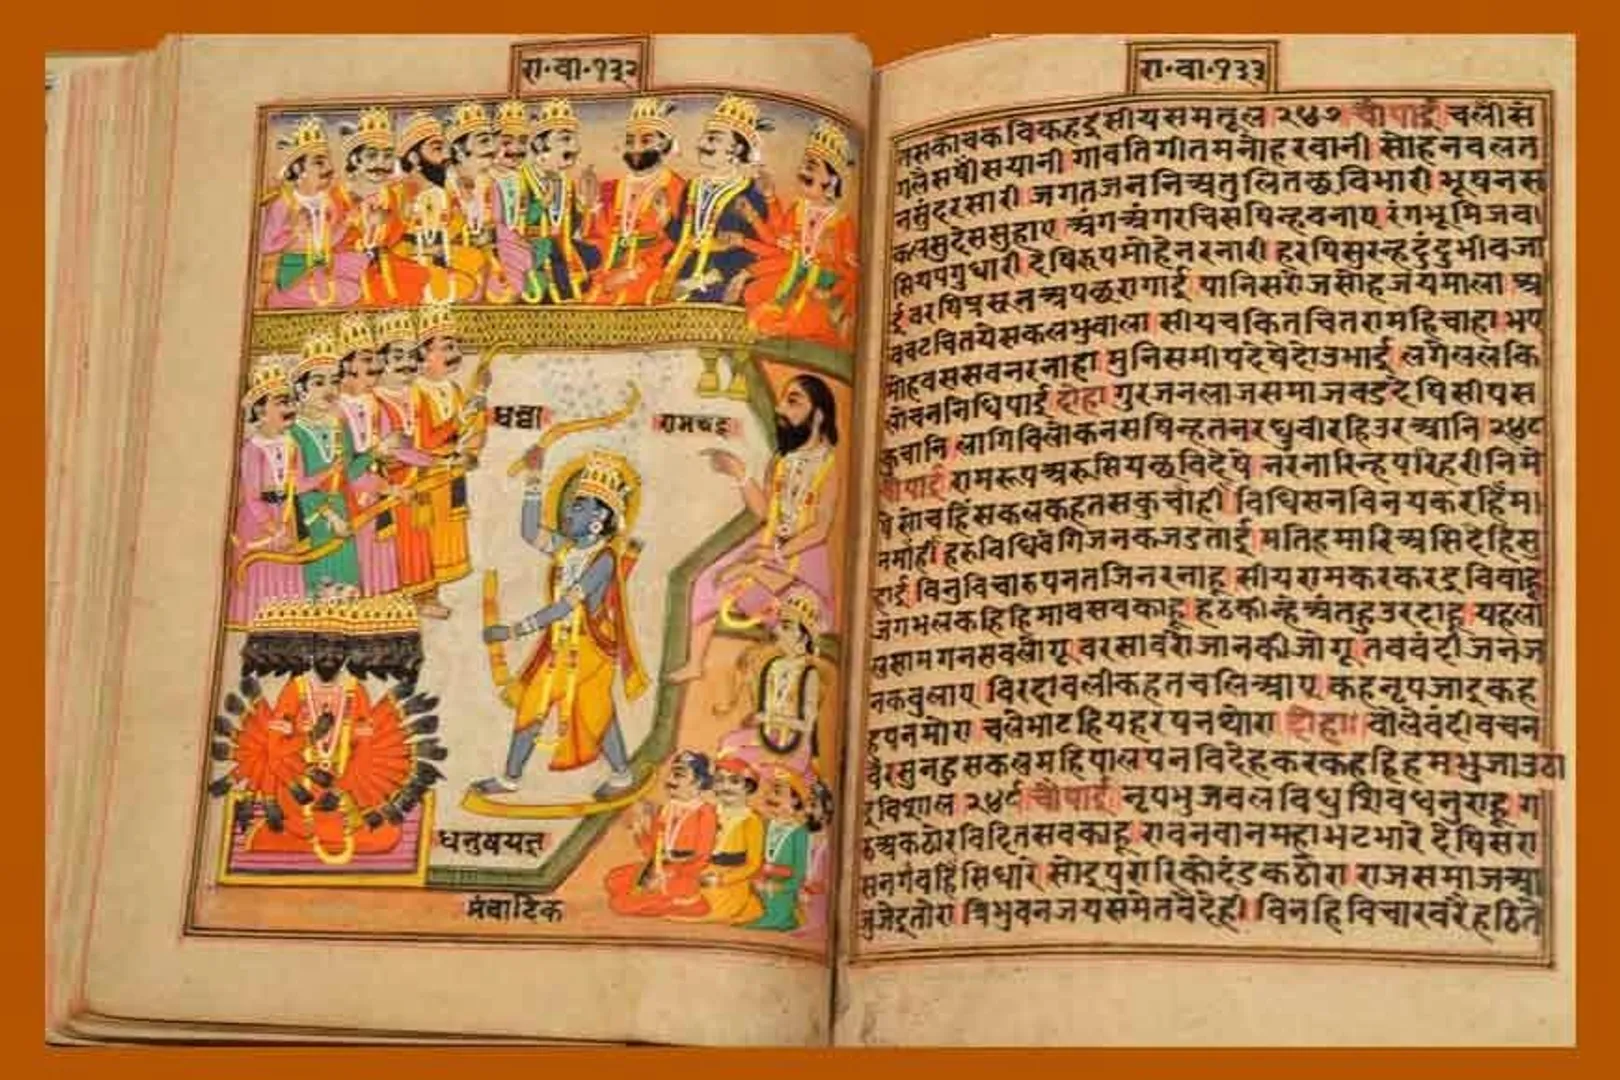 रा॰वा॰१३२
धन्वा
रामचद्र
धनुषयज्ञ
मंचादिक
रा॰वा॰१३३
तसकोचकविकहइसीयसमतूल २४७ चौपाई चलीसं
गलैसषीसयानी गावतिगीतमनोहरवानी सोहनवलत
नसुंदरसारी जगतजननिअतुलितछविभारी भूषनस
कलसुदेससुहाए अंगअंगरचिसषिन्हवनाए रंगभूमिजव।
सियपगुधारी देषिरूपमोहेनरनारी हरषिसुरन्हदुंदुभीवजा
ई वरषिप्रसूनअपछरागाई पानिसरोजसोहजयमाला अ
वचटचितयेसकलभुवाला सीयचकितचितरामहिचाहा भए
मोहवससवनरनाहा मुनिसमीपदेषेदोउभाई लगेललकि
लोचननिधिपाई दोहा गुरजनलाजसमाजवडदेषिसीयस
कुचानि लागिविलोकनसषिन्हतनरघुवीरहिउरआनि २४८
चौपाई रामरूपअरुसियछविदेषे नरनारिन्हपरिहरीनिमे
षे सोचहिंसकलकहतसकुचाही विधिसनविनयकरहिंम।
नमाही हरुविधिवेगिजनकजडताई मतिहमारिअसिदेहिसु
हाई विनुविचारुपनतजिनरनाहू सीयरामकरकरइविवाहू
जगभलकहिहिभावसवकाहू हठकीन्हेअंतहुउरदाहू यहला
लसामगनसवलोगू वरसावरोजानकीजोगू तववंदीजनज
नकवुलाए विरदावलीकहतचलिआए कहनृपजाइकह
हुपनमोरा चलेभाटहियहरषनथोरा दोहा॥ वोलेवंदीवचन
वरसुनहुसकलमहिपाल पनविदेहकरकहहिहमभुजाउठा
इविशाल २४९ चौपाई नृपभुजवलविधुशिवधनुराहू ग
रुअकठोरविदितसवकाहू रावनवानमहाभटभारे देषिसरा
सनगवहिंसिधारे सोइपुरारिकोदंडकठोरा राजसमाजआ
जुजेइतोरा त्रिभुवनजयसमेतवैदेही विनहिविचारवरैहठिते